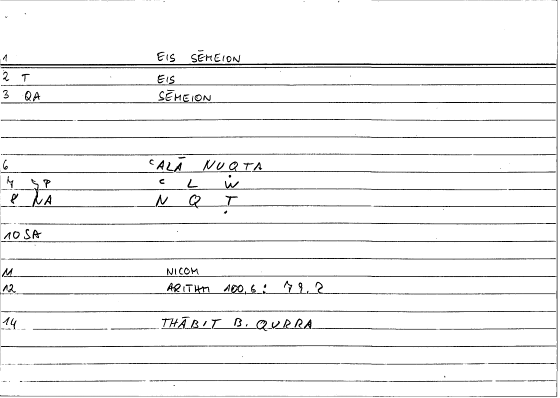 1 EIS SĒMEION
2 T EIS
3 QA SĒMEION
6 ʿALĀ NUQTA
7 P ʿ L Ẇ
8 NA N Q Ṭ
10 SA
11 NICOM
12 ARITHM 100,6:
14 THĀBIT B. QURRA